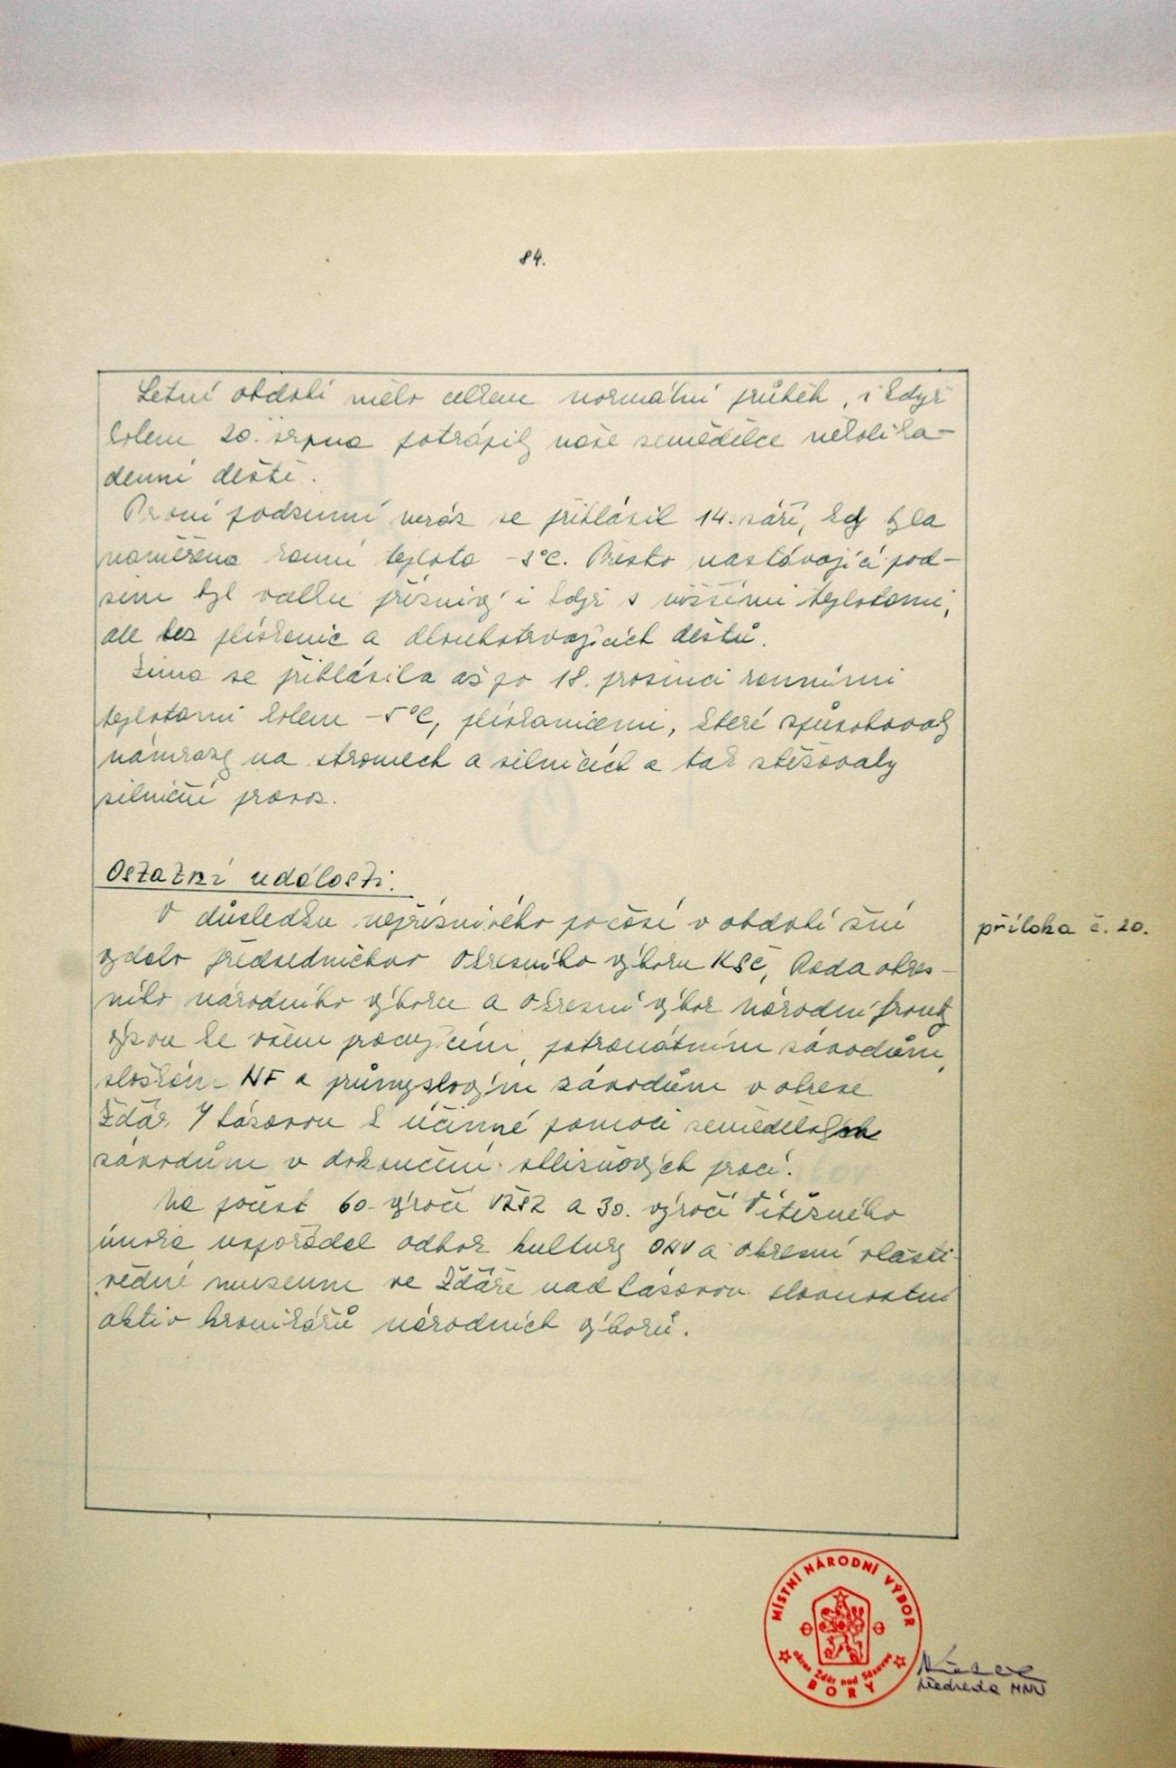 84.
Letní období mělo celkem normální průběh, i když
kolem 20. srpna potrápily naše zemědělce několika-
denní deště.
První podzimní mráz se přihlásil 14. září, kdy byla
naměřena ranní teplota -3°C. Přesto nastávající pod-
zim byl celkem příznivý i když s nižšími teplotami,
ale bez plískanic a dlouhotrvajících dešťů.
Zima se přihlásila až po 18. prosinci ranními
teplotami kolem -5°C, plískanicemi, které způsobovaly
námrazy na stromech a silnicích a tak stěžovaly
silniční provoz.
Ostatní události.
V důsledku nepříznivého počasí v období žní
vydalo předsednictvo Okresního výboru KSČ, Rada okres-
ního národního výboru a Okresní výbor národní fronty
výzvu ke všem pracujícím, patronátním závodům,
složkám NF a průmyslovým závodům v okrese
Žďár n/Sázavou k účinné pomoci zemědělským
závodům v dokončení sklizňových prací.
Na počest 60. výročí VŘSR a 30. výročí Vítězného
února uspořádal odbor kultury ONV a Okresní vlasti-
vědné museum ve Žďáře nad Sázavou slavnostní
aktiv kronikářů národních výborů.
příloha č. 20.
MÍSTNÍ NÁRODNÍ VÝBOR
okres Žďár nad Sázavou
BORY
předseda MNV